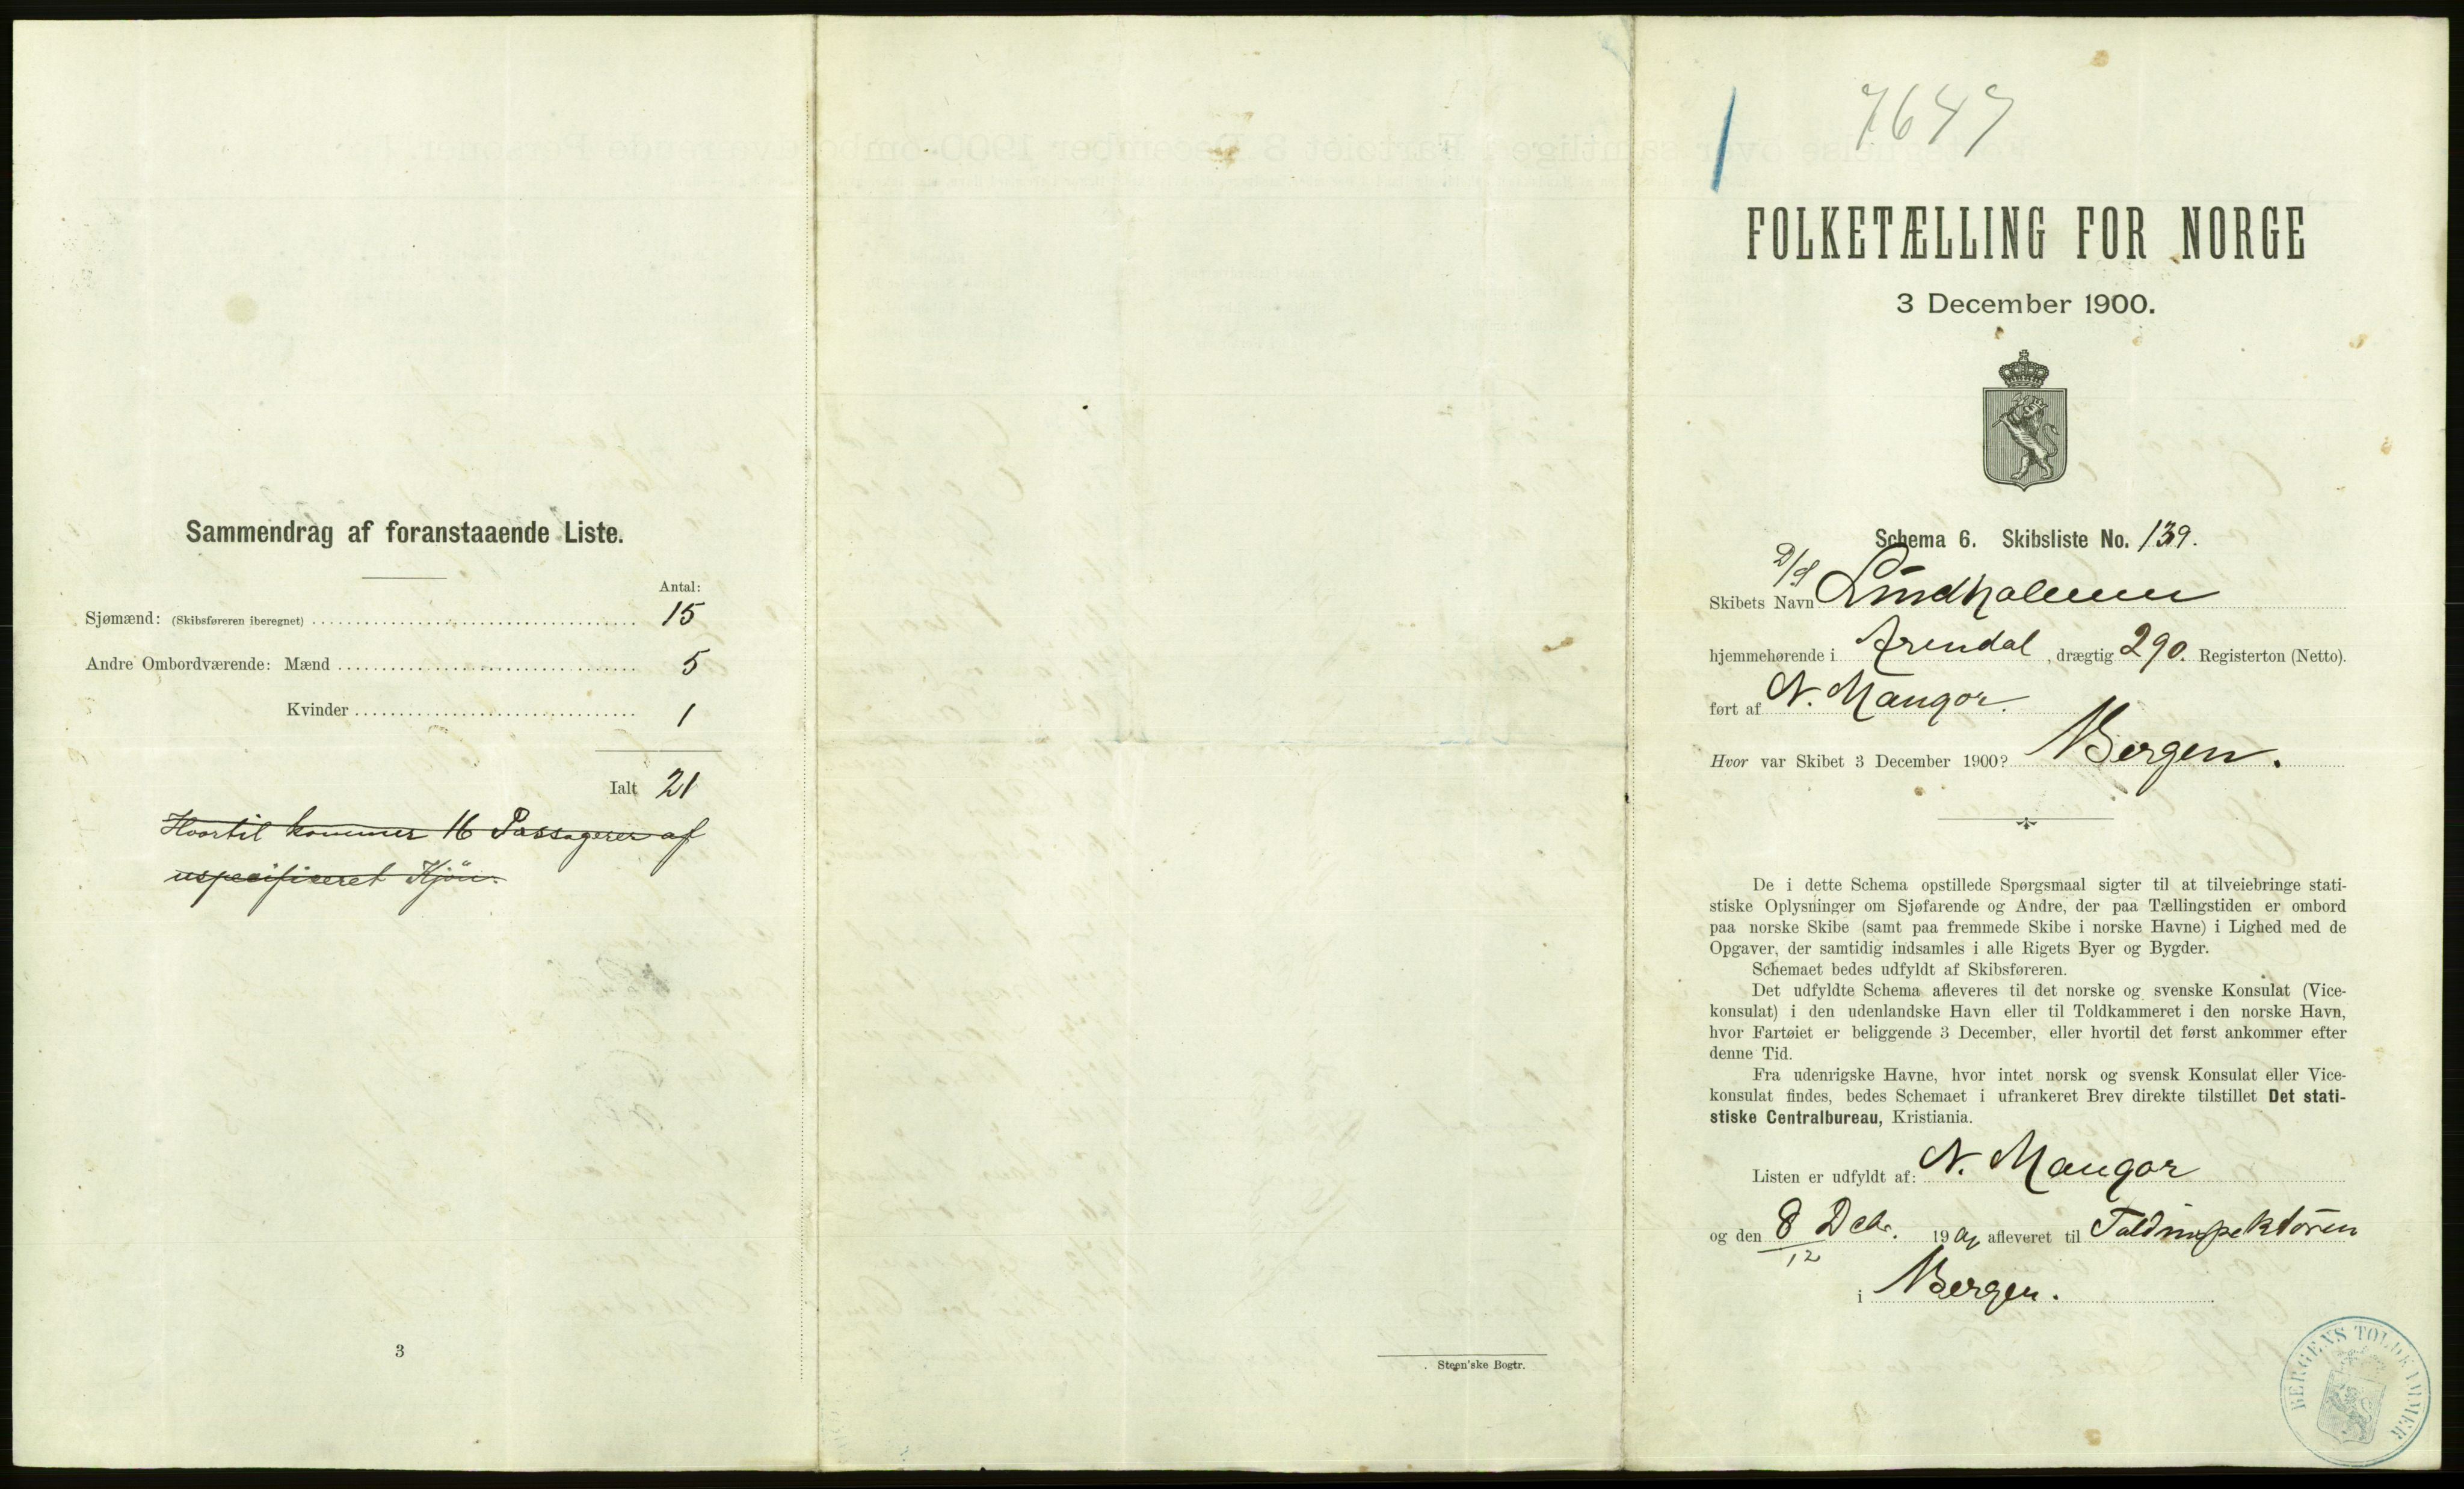 Sammendrag af foranstaaende Liste.
Antal:
Sjømænd: (Skibsføreren iberegnet) 15
Andre Ombordværende: Mænd 5
Kvinder 1
Ialt 21
Hvortil kommer 16 Passagerer af
uspecificeret Kjön.
3
Steen'ske Bogtr.
7647
FOLKETÆLLING FOR NORGE
3 December 1900.
Schema 6. Skibsliste No. 139.
Skibets Navn D/S Lindholmen
hjemmehørende i Arendal, drægtig 290. Registerton (Netto).
ført af N. Mangor.
Hvor var Skibet 3 December 1900? Bergen.
De i dette Schema opstillede Spørgsmaal sigter til at tilveiebringe stati-
stiske Oplysninger om Sjøfarende og Andre, der paa Tællingstiden er ombord
paa norske Skibe (samt paa fremmede Skibe i norske Havne) i Lighed med de
Opgaver, der samtidig indsamles i alle Rigets Byer og Bygder.
Schemaet bedes udfyldt af Skibsføreren.
Det udfyldte Schema afleveres til det norske og svenske Konsulat (Vice-
konsulat) i den udenlandske Havn eller til Toldkammeret i den norske Havn,
hvor Fartøiet er beliggende 3 December, eller hvortil det først ankommer efter
denne Tid.
Fra udenrigske Havne, hvor intet norsk og svensk Konsulat eller Vice-
konsulat findes, bedes Schemaet i ufrankeret Brev direkte tilstillet Det stati-
stiske Centralbureau, Kristiania.
Listen er udfyldt af: N. Mangor
og den 8 Dcbr. 19 afleveret til Toldinspektøren
12
i Bergen.
BERGENS TOLDKAMMER